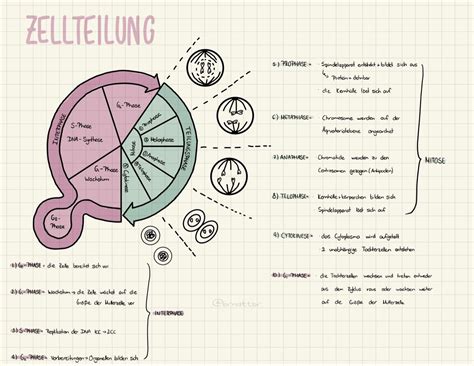 ZELLTEILUNG
INTERPHASE
G₂-Phase
S-Phase
DNA-Synthese
G₁-Phase
Wachstum
G₀-Phase
Mitose
Prophase
Metaphase
Anaphase
Telophase
TEILUNGSPHASE
5.) PROPHASE= Spindelapparat entsteht + bildet sich aus
↳ Protein = dehnbar
die Kernhülle löst sich auf
6.) METAPHASE= Chromosome werden auf der
Äquatorialebene angeordnet
7.) ANAPHASE= Chromatide werden zu den
Centrosomen gezogen
8.) TELOPHASE= Kernhülle + Kernkörperchen bilden sich
Spindelapparat löst sich auf
MITOSE
9.) CYTOKINESE= das Cytoplasma wird aufgeteilt
2 unabhängige Tochterzellen entstehen
die Tochterzellen wachsen und treten entweder
aus dem Zyklus raus oder wachsen weiter
auf die Größe der Mutterzelle
-PHASE= die Zelle bereitet sich vor
2.) G₁-PHASE= Wachstum → die Zelle wächst auf die
Größe der Mutterzelle
3.) S-PHASE= Replikation der DNA 1CC → 2CC
4.) G₂-PHASE= Vorbereitungen → Organellen bilden sich
INTERPHASE